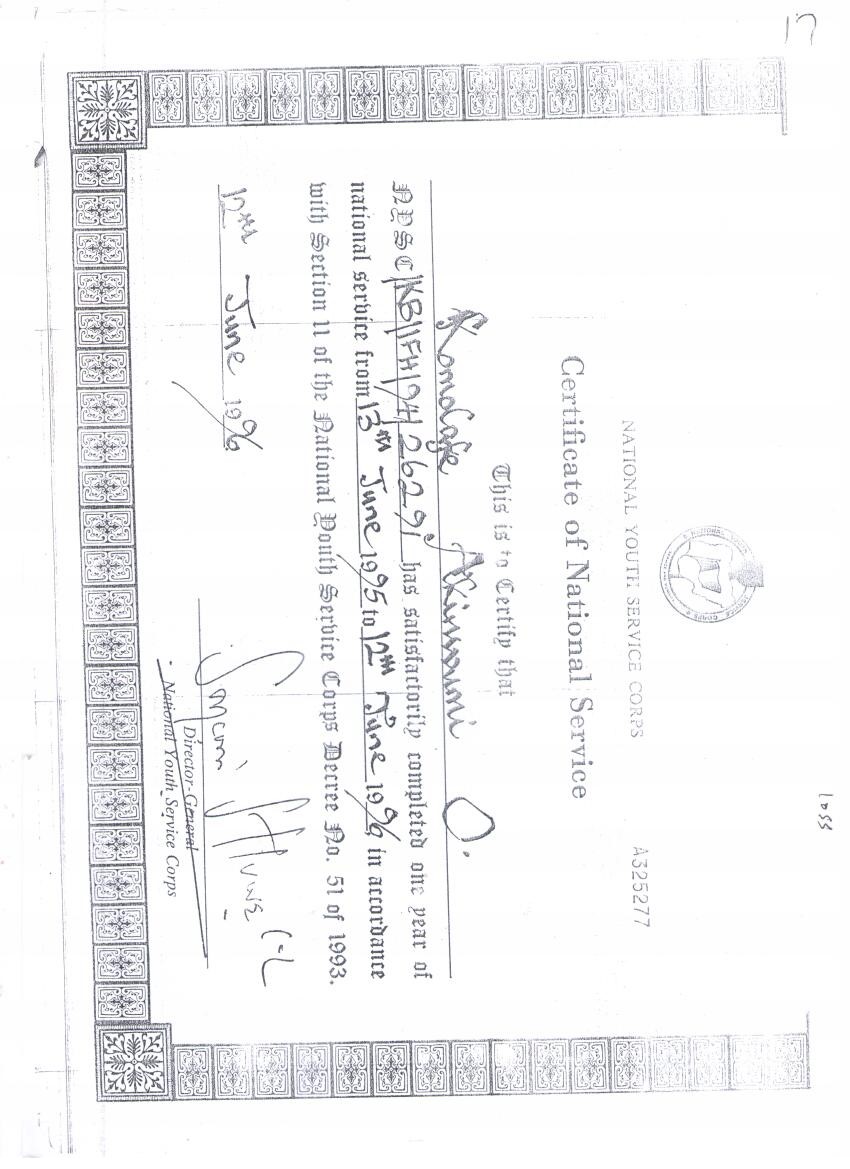 17
loss
A325277
NATIONAL YOUTH SERVICE CORPS
Certificate of National Service
This is to Certify that
Komolafe Akinwumi O.
NYSC/KB/IFH/94/262291 has satisfactorily completed one year of
national service from 13TH June 1995 to 12TH June 1996 in accordance
with Section 11 of the National Youth Service Corps Decree No. 51 of 1993.
12TH June 1996
Director-General
National Youth Service Corps